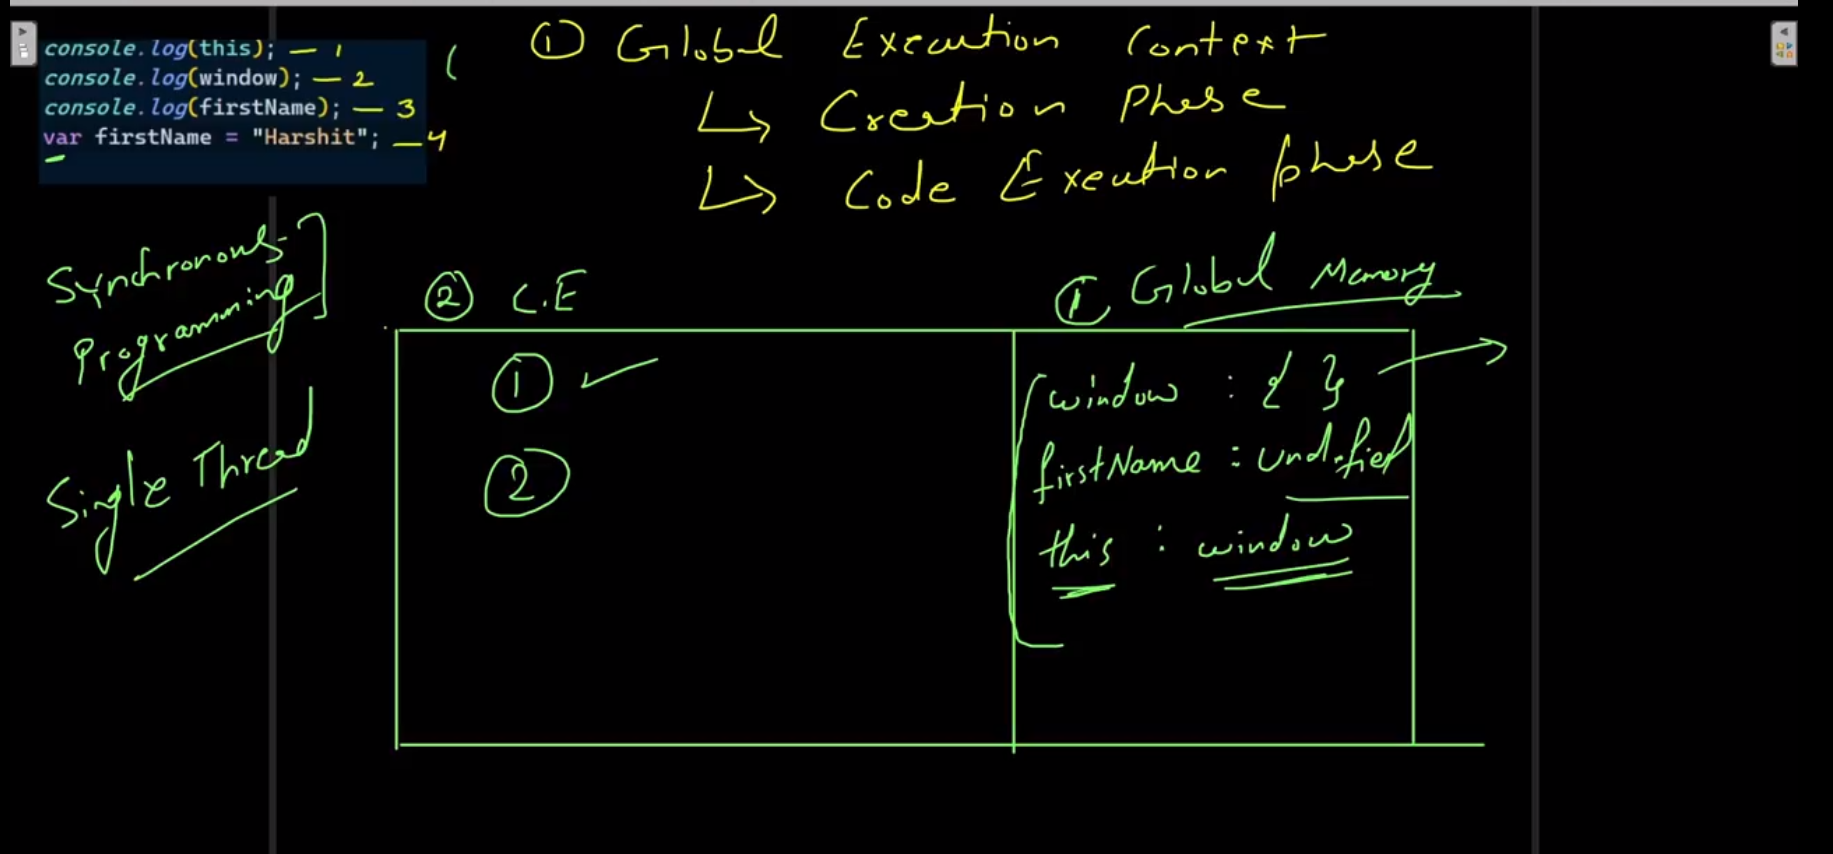 console.log(this); — 1
console.log(window); — 2
console.log(firstName); — 3
var firstName = "Harshit"; — 4
① Global Execution Context
↳ Creation Phase
↳ Code Execution phase
Synchronous
Programming
Single Thread
② C.E
① Global Memory
① ✓
②
window : { } →
firstName : undefied
this : window